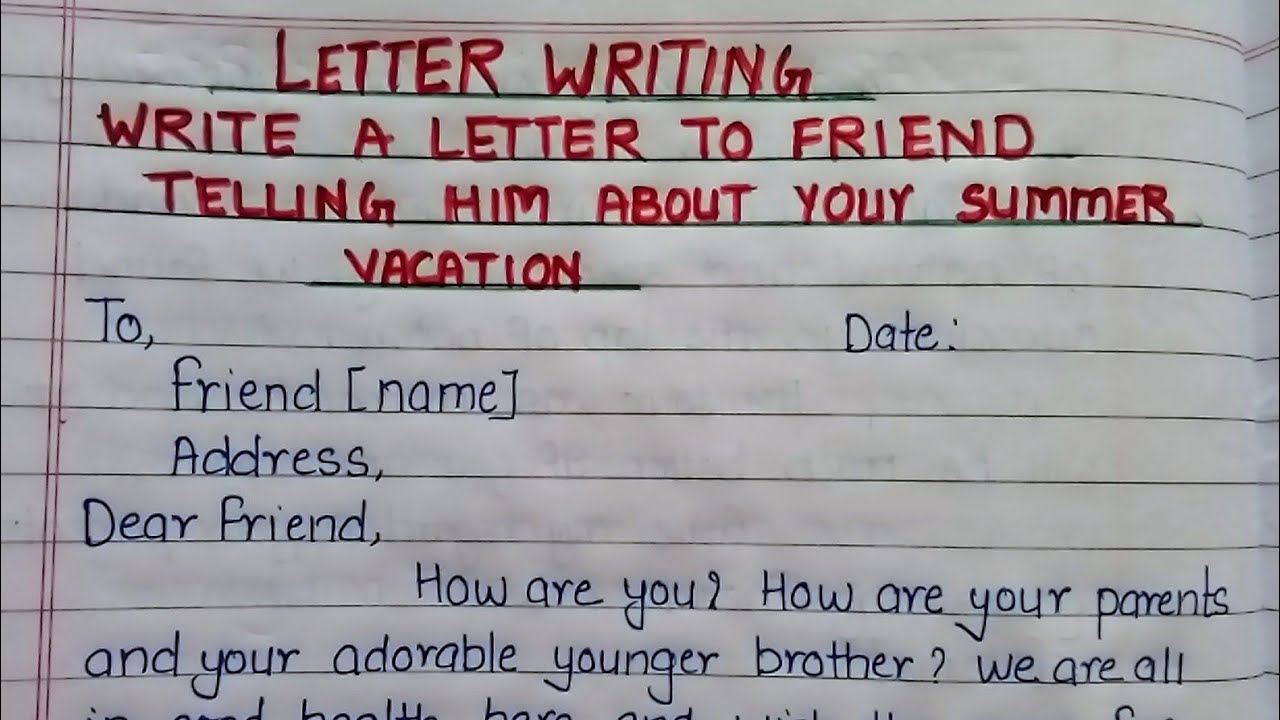 LETTER WRITING
WRITE A LETTER TO FRIEND
TELLING HIM ABOUT YOUY SUMMER
VACATION
To,
Date:
friend [name]
Address,
Dear friend,
How are you? How are your parents
and your adorable younger brother? We are all
in good health here and